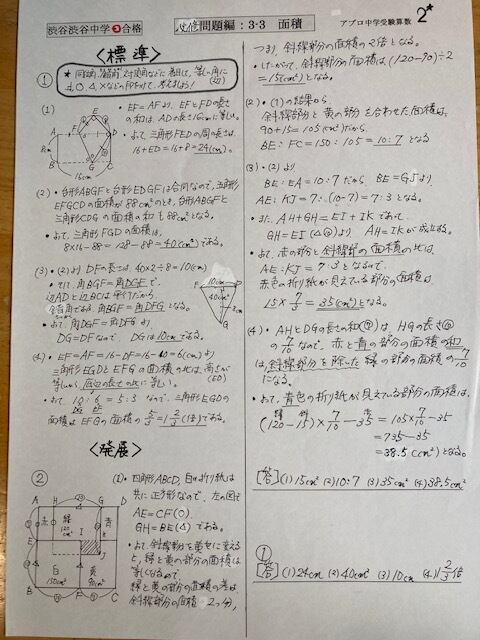 渋谷渋谷中学 合格
必修問題編：3-3 面積
アプロ中学受験算数 2*
〈標準〉
①
(1)
EF=AFより、EFとFDの長さ
の和は、ADの長さ16cmに等しい。
よって、三角形FEDの周の長さは、
16+ED=16+8=24(cm)。
A F D
E
8cm
B G C
16cm
(2)・台形ABGFと台形EDGFは合同なので、五角形
EFGCDの面積が88cm²のとき、台形ABGFと
三角形CDGの面積の和も88cm²となる。
・よって、三角形FGDの面積は、
8×16-88=128-88=40(cm²)である。
(3)・(2)より DFの長さは、40×2÷8=10(cm)
・そして、角BGF=角DGFで、
辺ADと辺BCは平行だから、
錯角である、角BGF=角DFGとなる。
・よって、角DGF=角DFGより
DG=DFなので、DGは10cmである。
10cm
F D
40cm²
8cm
G
(4)・EF=AF=16-DF=16-10=6(cm)より
三角形EGDとEFGの面積の比は、高さが
等しいから、底辺の長さの比に等しく。
(ED)
・よって、10:6=5:3なので、三角形EGDの
DG EF
面積はEFGの面積の5/3=1 2/3(倍)である。
〈発展〉
②
A H G D
赤 緑 青
120cm²
E I J
K
白 黄
150cm² 90cm²
B F C
(1)・四角形ABCD、白の折り紙は
共に正方形なので、左の図で
AE=CF(○)
GH=BE(△)である。
・よって、斜線部分を黄色に変える
と、緑と黄の部分の面積は
等しくなるので
緑と黄の部分の面積の差は
斜線部分の面積の2つ分、
つまり、斜線部分の面積の2倍となる。
・したがって、斜線部分の面積は、(120-90)÷2
=15(cm²)となる。
(2)・(1)の結果から
斜線部分と黄の部分を合わせた面積は、
90+15=105(cm²)だから、
BE:FC=150:105=10:7となる
(3)・(2)より
BE:EA=10:7だから、BE=GJより
AE:KJ=7:(10-7)=7:3となる。
・また、AH+GH=EI+IKであって、
GH=EI(△)より AH=IKが成立する。
・よって、赤の部分と斜線部の面積の比は、
AE:KJ=7:3となるので、
赤色の折り紙が見えている部分の面積は
15×7/3=35(cm²)となる。
(4)・AHとDGの長さの和(⑦)は、HGの長さ⑩
の7/10なので、赤と青の部分の面積の和
は、斜線部分を除いた緑の部分の面積の7/10
になる。
・よって、青色の折り紙が見えている部分の面積は、
緑 斜 赤
(120-15)×7/10-35=105×7/10-35
=73.5-35
=38.5(cm²)となる。
[答](1)15cm² (2)10:7 (3)35cm² (4)38.5cm²
①
[答](1)24cm (2)40cm² (3)10cm (4)1 2/3倍